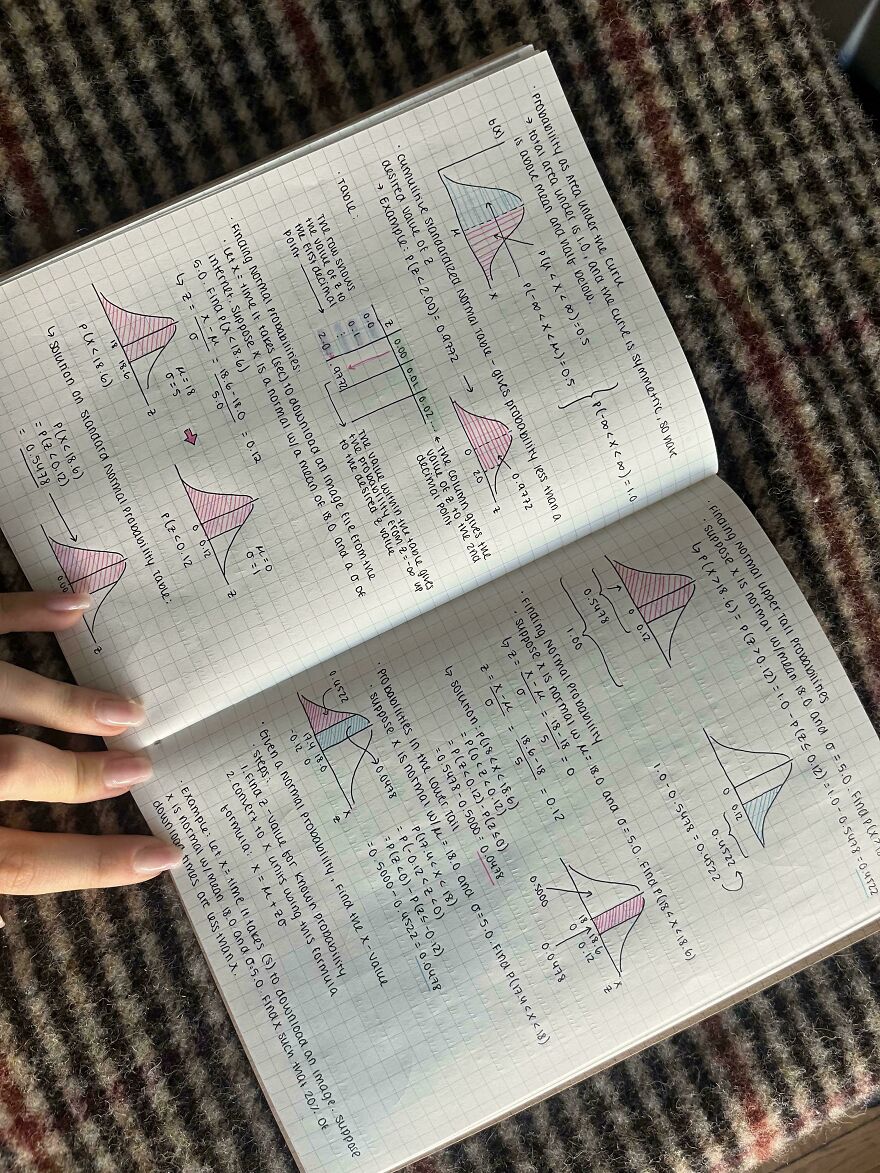 · probability as area under the curve
→ total area under is 1.0, and the curve is symmetric, so half
is above mean and half below.
f(x)
P(-∞ < X < μ) = 0.5
P(μ < X < ∞) = 0.5
P(-∞ < X < ∞) = 1.0
μ
X
· cumulitive standardized normal table - gives probability less than a
desired value of z
→ Example: P(Z < 2.00) = 0.9772 →
0.9772
0 2.0 Z
· Table:
The row shows
the value of z to
the first decimal
point →
Z 0.00 0.01 0.02...
0.0
0.1
2.0 .9772
← The column gives the
value of z to the 2nd
decimal point
The value within the table gives
the probability from z = -∞ up
to the desired z value
· Finding normal probabilities:
· Let x = time it takes (sec) to download an image file from the
internet. Suppose X is a normal w a mean of 18.0 and a σ of
5.0. Find P(X < 18.6)
↳ Z = X - μ / σ = 18.6 - 18.0 / 5.0 = 0.12
μ = 18
σ = 5
18 18.6
P(X < 18.6)
μ = 0
σ = 1
0 0.12 Z
P(Z < 0.12)
↳ solution on standard normal probability table:
P(X < 18.6)
= P(Z < 0.12)
= 0.5478
Z
· Finding normal upper tail probabilities
· suppose x is normal w/ mean 18.0 and σ = 5.0. Find
↳ P(X > 18.6) = P(Z > 0.12) = 1.0 - P(Z ≤ 0.12) = 1.0 - 0.5478 = 0.4522
0 0.12
0.5478
1.00
0 0.12
0.4522
1.0 - 0.5478 = 0.4522
· Finding normal probability
· suppose x is normal w μ = 18.0 and σ = 5.0. Find P(18 < X < 18.6)
↳ Z = X - μ / σ = 18 - 18 / 5 = 0
Z = X - μ / σ = 18.6 - 18 / 5 = 0.12
↳ solution: P(18 < X < 18.6)
= P(0 < Z < 0.12)
= P(Z < 0.12) - P(Z ≤ 0)
= 0.5478 - 0.5000 = 0.0478
18 18.6 X
0 0.12 Z
0.5000
0.0478
· probabilities in the lower tail
· suppose X is normal w/ μ = 18.0 and σ = 5.0. Find P(17.4 < X < 18)
P(17.4 < X < 18)
= P(-0.12 < Z < 0)
= P(Z < 0) - P(Z ≤ -0.12)
= 0.5000 - 0.4522 = 0.0478
0.4522
0.0478
17.4 18.0 X
-0.12 0 Z
· Given a normal probability, find the x-value
· steps:
1. Find z-value for known probability
2. convert to x units using this formula
formula: X = μ + Zσ
· Example: Let x = time it takes (s) to download an image. suppose
x is normal w/ mean 18.0 and σ = 5.0. Find x such that 20% of
download times are less than x.